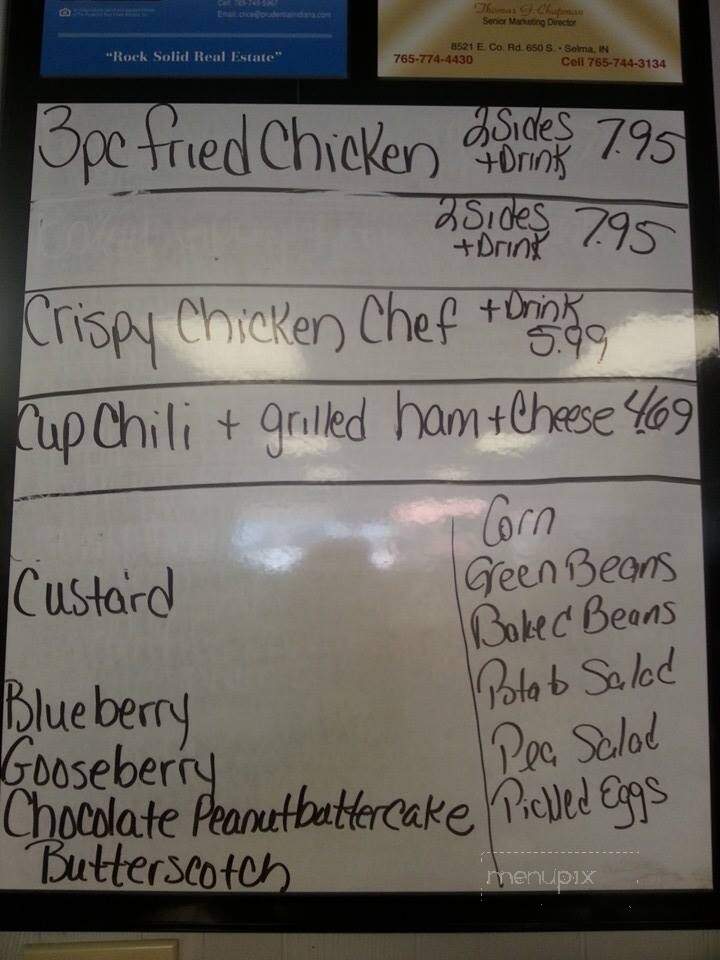 Cell 765-749-5967
"Rock Solid Real Estate"
Thomas G. Chapman
Senior Marketing Director
8521 E. Co. Rd. 650 S. • Selma, IN
765-774-4430 Cell 765-744-3134
3pc fried Chicken 2 Sides + Drink 7.95
2 Sides + Drink 7.95
Crispy Chicken Chef + Drink 5.99
Cup Chili + grilled ham + Cheese 4.69
Custard
Blueberry
Gooseberry
Chocolate Peanutbuttercake
Butterscotch
Corn
Green Beans
Baked Beans
Potato Salad
Pea Salad
Pickled Eggs
menupix